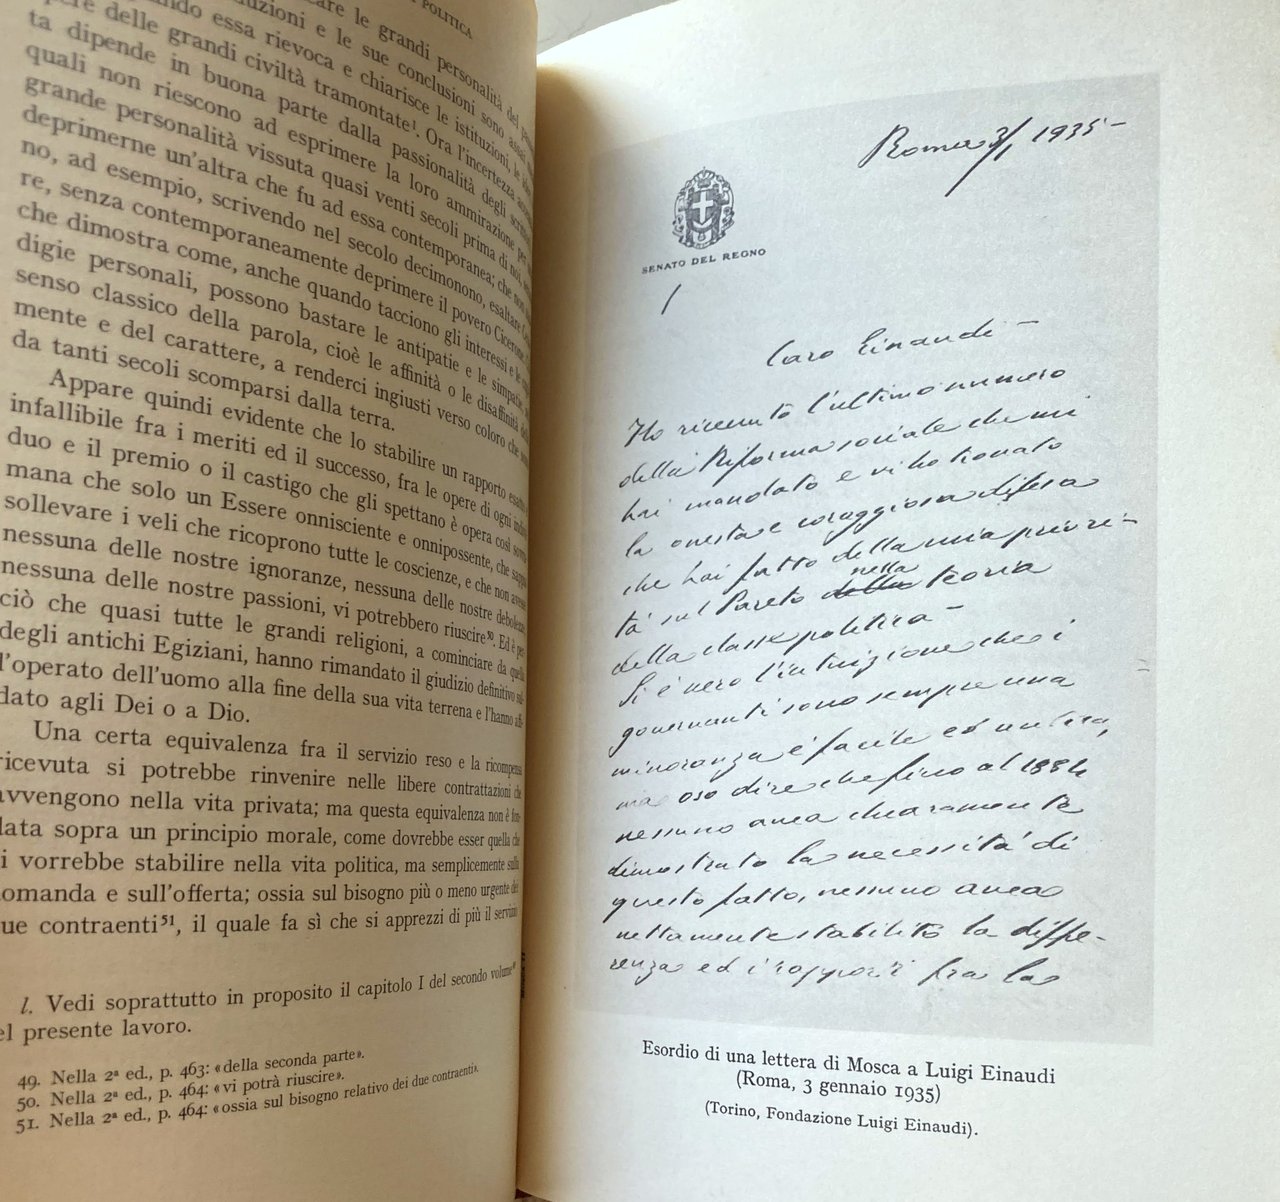 POLITICA
care le grandi personalità del
duzioni e le sue conclusioni sono assai
quando essa rievoca e chiarisce le istituzioni, le
opere delle grandi civiltà tramontate¹. Ora l'incertezza
ta dipende in buona parte dalla passionalità degli
quali non riescono ad esprimere la loro ammirazione per
grande personalità vissuta quasi venti secoli prima di noi,
deprimerne un'altra che fu ad essa contemporanea; che non
no, ad esempio, scrivendo nel secolo decimonono, esaltare
re, senza contemporaneamente deprimere il povero Cicerone
che dimostra come, anche quando tacciono gli interessi e le
digie personali, possono bastare le antipatie e le simpatie, nel
senso classico della parola, cioè le affinità o le disaffinità della
mente e del carattere, a renderci ingiusti verso coloro che
da tanti secoli scomparsi dalla terra.
Appare quindi evidente che lo stabilire un rapporto
infallibile fra i meriti ed il successo, fra le opere di ogni
duo e il premio o il castigo che gli spettano è opera così
mana che solo un Essere onnisciente e onnipossente, che
sollevare i veli che ricoprono tutte le coscienze, e che non
nessuna delle nostre ignoranze, nessuna delle nostre
nessuna delle nostre passioni, vi potrebbero riuscire⁵⁰. Ed è
ciò che quasi tutte le grandi religioni, a cominciare da quella
degli antichi Egiziani, hanno rimandato il giudizio definitivo
l'operato dell'uomo alla fine della sua vita terrena e l'hanno
dato agli Dei o a Dio.
Una certa equivalenza fra il servizio reso e la ricompensa
ricevuta si potrebbe rinvenire nelle libere contrattazioni che
avvengono nella vita privata; ma questa equivalenza non è
data sopra un principio morale, come dovrebbe esser quella che
si vorrebbe stabilire nella vita politica, ma semplicemente sulla
domanda e sull'offerta; ossia sul bisogno più o meno urgente dei
due contraenti⁵¹, il quale fa sì che si apprezzi di più il servizio
l. Vedi soprattutto in proposito il capitolo I del secondo volume
el presente lavoro.
49. Nella 2ª ed., p. 463: «della seconda parte».
50. Nella 2ª ed., p. 464: «vi potrà riuscire».
51. Nella 2ª ed., p. 464: «ossia sul bisogno relativo dei due contraenti».
Roma 3/1 1935 –
SENATO DEL REGNO
Caro Einaudi –
Ho ricevuto l'ultimo numero
della Riforma sociale che mi
hai mandato e vi ho trovato
la onesta e coraggiosa difesa
che hai fatto della mia priori-
tà sul Pareto della nella teoria
della classe politica –
Si è vero l'intuizione che i
governanti sono sempre una
minoranza è facile ed antica,
ma oso dire che fino al 1884
nessuno avea chiaramente
dimostrato la necessità di
questo fatto, nessuno avea
nettamente stabilito la diffe-
renza ed i rapporti fra la
Esordio di una lettera di Mosca a Luigi Einaudi
(Roma, 3 gennaio 1935)
(Torino, Fondazione Luigi Einaudi).